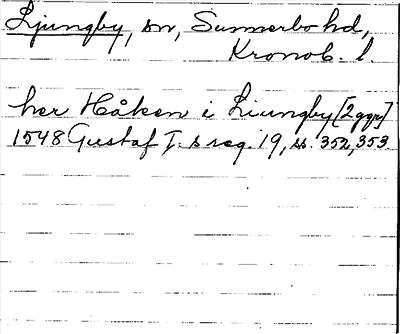 Ljungby, sn, Sunnerbo hd,
Kronob. l.
her Håken i Liungby [2 ggr]
1548 Gustaf I:s reg. 19, ss. 352, 353